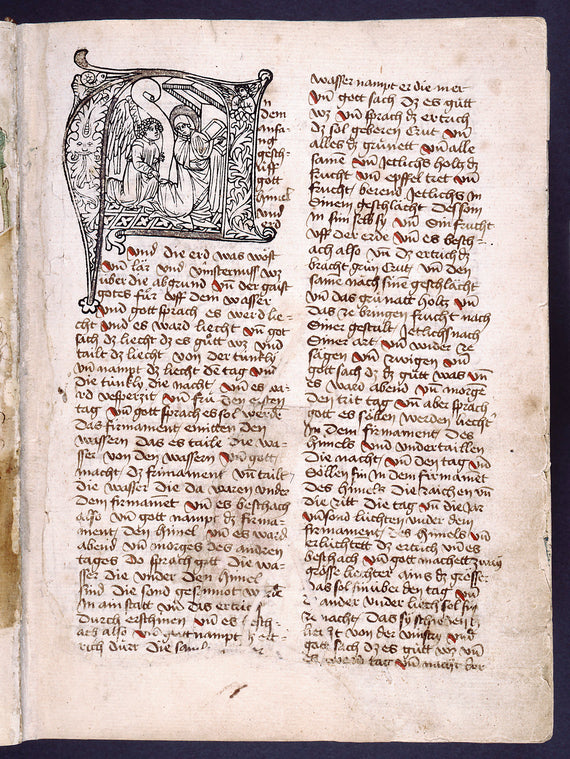 n
dem
anfa-
ng
gesch-
üff
gott
himel
vnd
erd
vnd die erd was wöst
vñ lär vnd vinsternuss wz
über die abgrund vñ der gaist
gotes für vff dem wasser
vnd gott sprach es werd lie-
cht vnd es ward liecht vñ got
sach dz liecht dz es gůtt wz vnd
tailt dz liecht von der tünkly
vñ nampt dz liecht dē tag vñ
die tünkly die nacht vñ es wa-
rd vesperzit vñ frü den ersten
tag vñ gott sprach es sol werdē
das firmament enmitten den
wassern das es taile die wa-
sser von den wassern vñ gott
macht dz firmament vñ tailt
die wasser die da waren vnder
dem firmamēt vñ es beschach
also vñ gott nampt dz firma-
ment den himel vñ es ward
abend vñ morges des andren
tages do sprach gott die wa-
sser die vnder den himel
sind die sond gesamnot w
in ain statt vnd das ertrich
durch erschinen vñ es besch-
ach also vñ gott nampt dz ert-
rich dürr die saml
wasser nampt er die mer
vñ gott sach dz es gůtt
wz vñ sprach dz ertrich
dz sol geberen Crut vñ
alles dz grünett vñ alle
same vñ jetlichs holtz dz
frucht vñ epffel tret vñ
frucht berend jetlichs in
sinem geschlächt des som
in sim selbsz vñ sin frucht
vff der erde vñ es besch-
ach also vñ dz ertrich dz
bracht grün Crut vñ den
same nach sine geschlächt
vñ das grünatt holtz vñ
das ze bringen frucht nach
siner gestalt jetlichs nach
siner art vñ wider ze
sägen vñ zwigen vñ
gott sach dz dz gůtt was vñ
es ward abend vñ morge
den trit tag vñ aber sprach
gott es söllen werden liecht
in dem firmament des
himels vnd vndertaillen
die nacht vñ den tag vnd
söllen sin in dem firmamēt
des himels die zaichen vñ
die zitt die tag vñ die jar
vñ sond lüchten vnder dem
firmament des himels vñ
erlüchtett dz ertrich vñ es
beschach vñ gott machett zway
grösse liechter ains dz grösse
das sol sin über den tag vñ
ander vnder liecht sol sin
ze nacht das sÿ schienent
liecht von der vinstry vnd
gott sach dz es gůtt wz vñ
es ward tag vñ nacht der